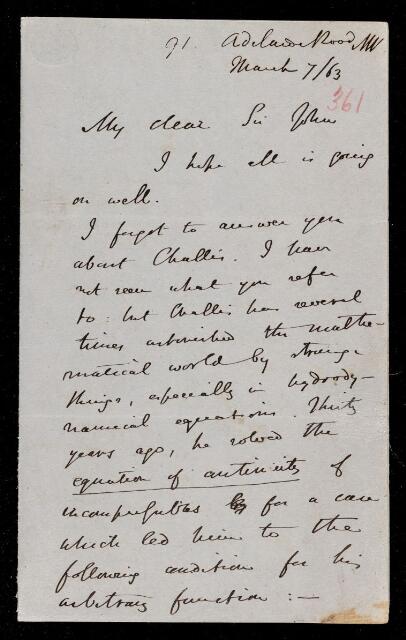 91. Adelaide Road, NW
March 7/63
361
My dear Sir John
I hope all is going
on well.
I forgot to answer you
about Challis. I have
not seen what you refer
to: but Challis has several
times astonished the mathe-
matical world by strange
things, especially in hydrody-
namical equations. Thirty
years ago, he solved the
equation of continuity of
incompressibles for a case
which led him to the
following condition for his
arbitrary function :—